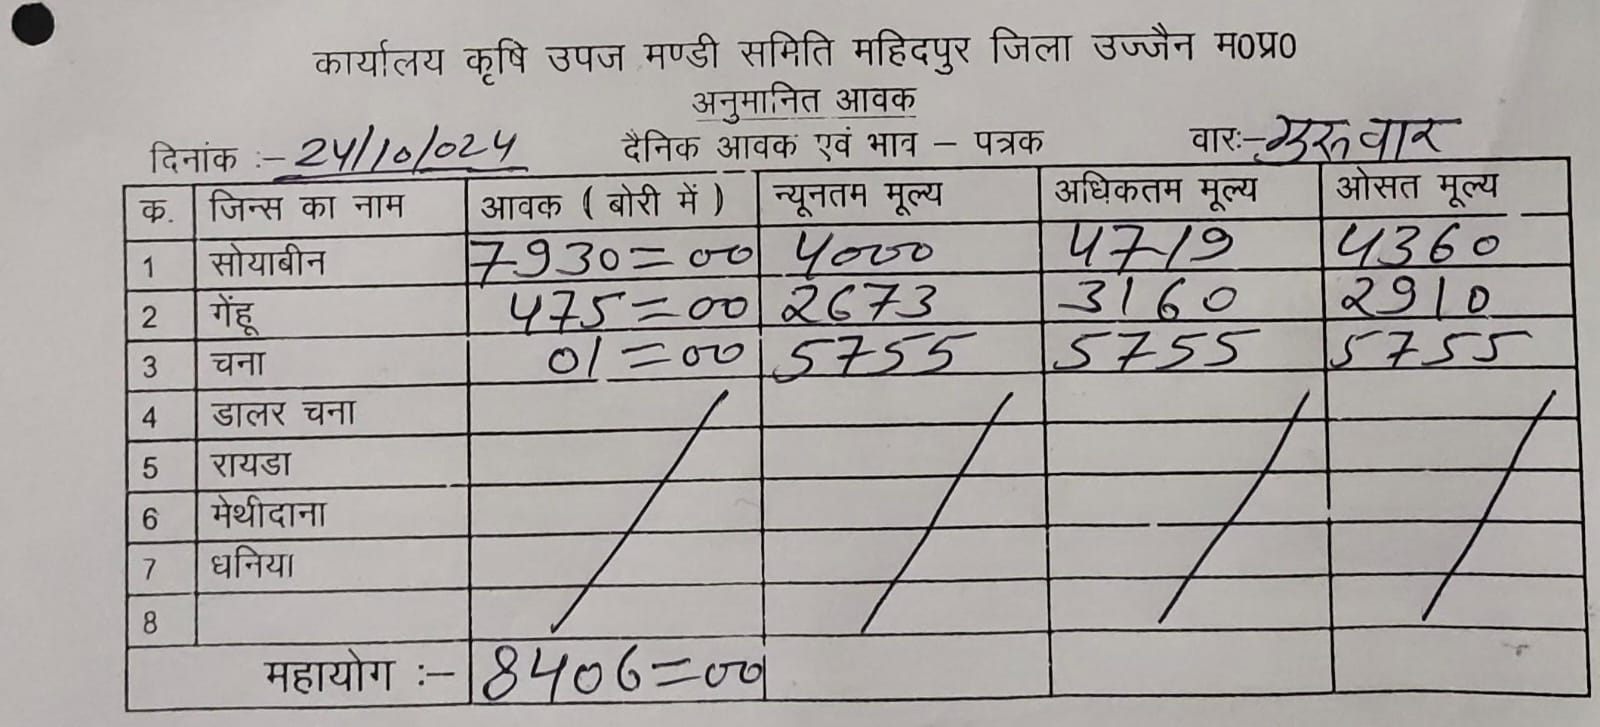 कार्यालय कृषि उपज मण्डी समिति महिदपुर जिला उज्जैन म0प्र0
अनुमानित आवक
दिनांक :- 24/10/024 दैनिक आवक एवं भाव - पत्रक वारः- गुरुवार
क. जिन्स का नाम आवक ( बोरी में ) न्यूनतम मूल्य अधिकतम मूल्य ओसत मूल्य
1 सोयाबीन 7930=00 4000 4719 4360
2 गेंहू 475=00 2673 3160 2910
3 चना 01=00 5755 5755 5755
4 डालर चना
5 रायडा
6 मेथीदाना
7 धनिया
8
महायोग :- 8406=00